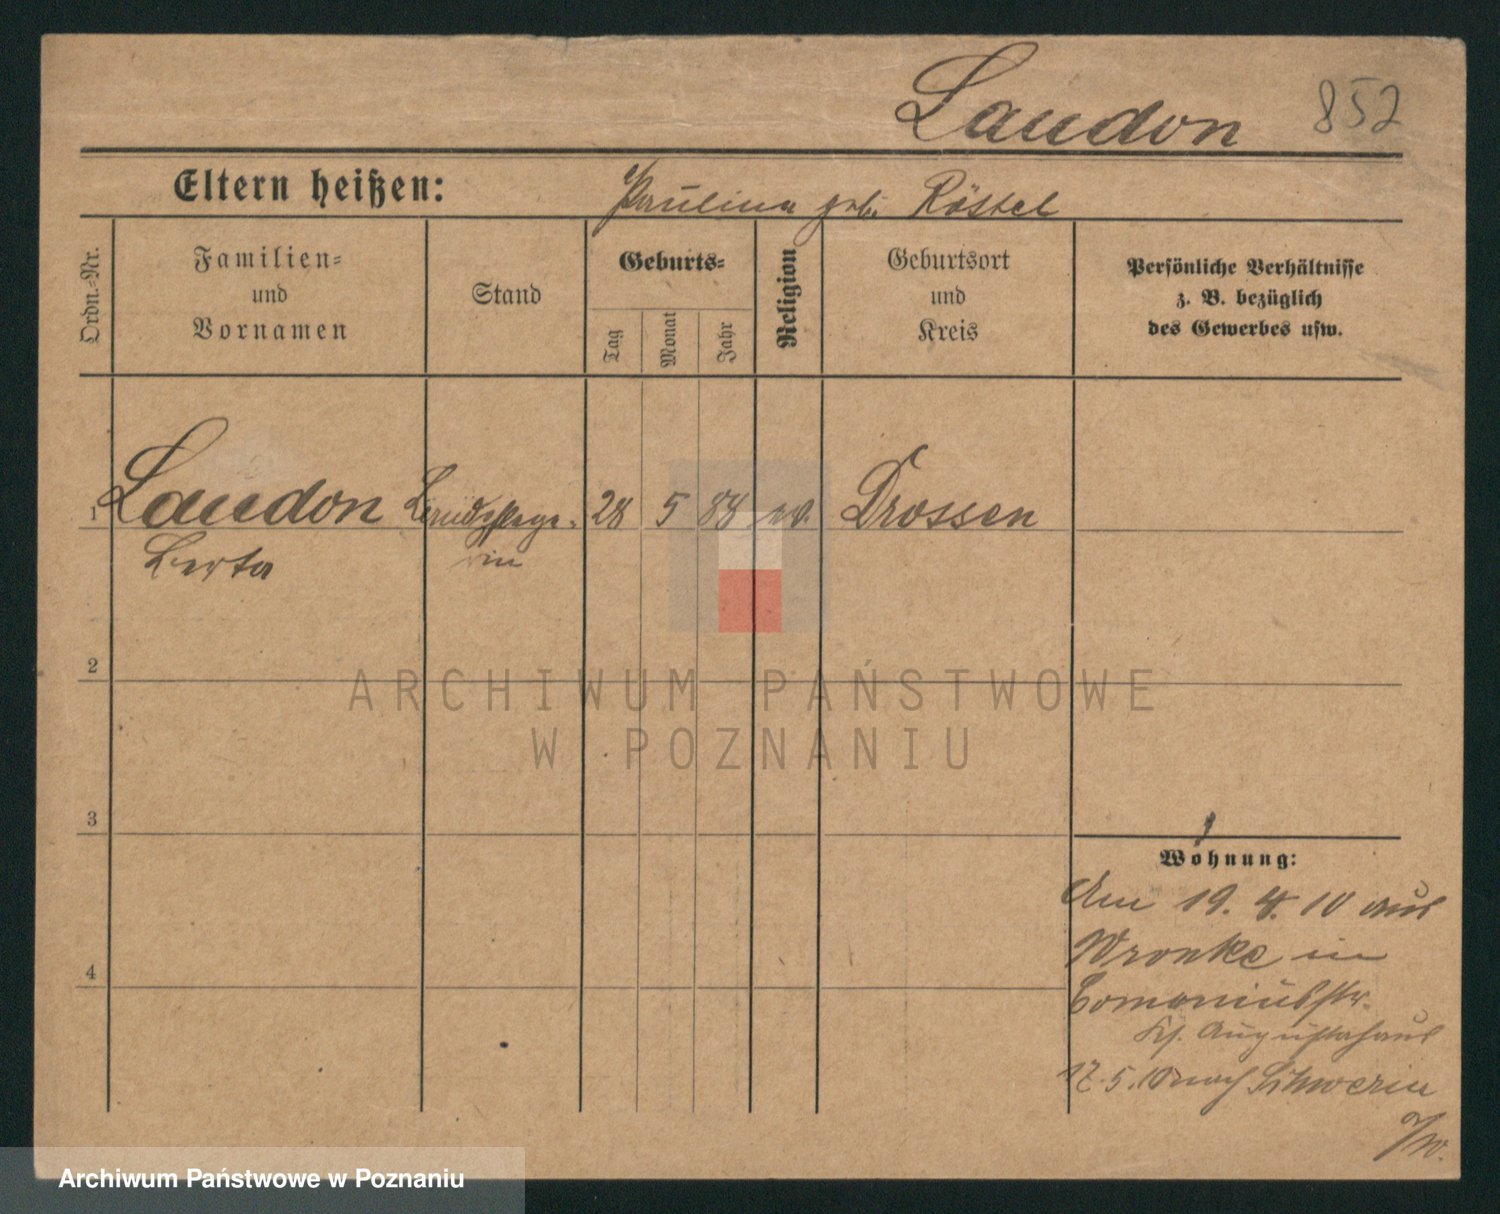 Laudon 852
Eltern heißen: Paulina geb. Röstel
Ordn.-Nr.
Familien-
und
Vornamen
Stand
Geburts-
Tag
Monat
Jahr
Religion
Geburtsort
und
Kreis
Persönliche Verhältnisse
z. B. bezüglich
des Gewerbes usw.
1 Laudon 28 5 88 ev. Drossen
Berta rin
2
ARCHIWUM PAŃSTWOWE
W POZNANIU
3
Wohnung:
Am 19. 4. 10 aus
Wronke in
4
Comeniusstr.
Augustahaus
17. 5. 10 nach Schwerin
a/W.
Archiwum Państwowe w Poznaniu